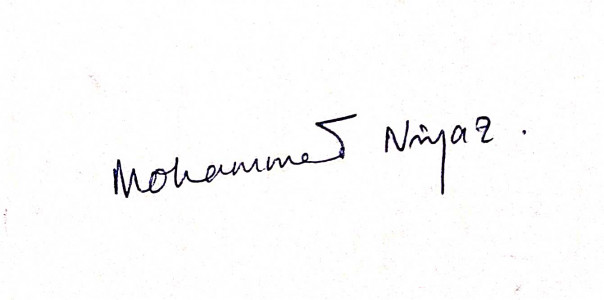 Mohammed Niyaz.